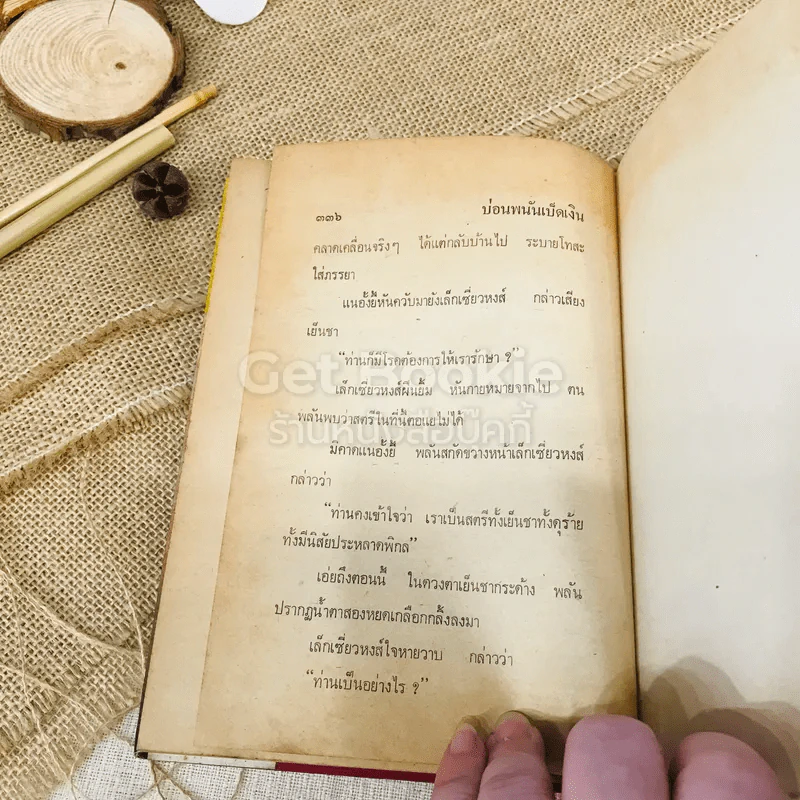 ๓๓๖ บ่อนพนันเบ็ดเงิน
คลาดเคลื่อนจริงๆ ได้แต่กลับบ้านไป ระบายโทสะ
ใส่ภรรยา
แน่อั้งยี้หันควับมายังเล็กเซี่ยวหงส์ กล่าวเสียง
เย็นชา
“ท่านก็มีโรคต้องการให้เรารักษา ?”
เล็กเซี่ยวหงส์ฝืนยิ้ม หันกายหมายจากไป ตน
พลันพบว่าสตรีในที่นี้ตอแยไม่ได้
มิคาดแน่อั้งยี้ พลันสกัดขวางหน้าเล็กเซี่ยวหงส์
กล่าวว่า
“ท่านคงเข้าใจว่า เราเป็นสตรีทั้งเย็นชาทั้งดุร้าย
ทั้งมีนิสัยประหลาดพิกล”
เอ่ยถึงตอนนี้ ในดวงตาเย็นชากระด้าง พลัน
ปรากฏน้ำตาสองหยดเกลือกกลิ้งลงมา
เล็กเซี่ยวหงส์ใจหายวาบ กล่าวว่า
“ท่านเป็นอย่างไร ?”
Get Bookie
ร้านหนังสือบุ๊คกี้